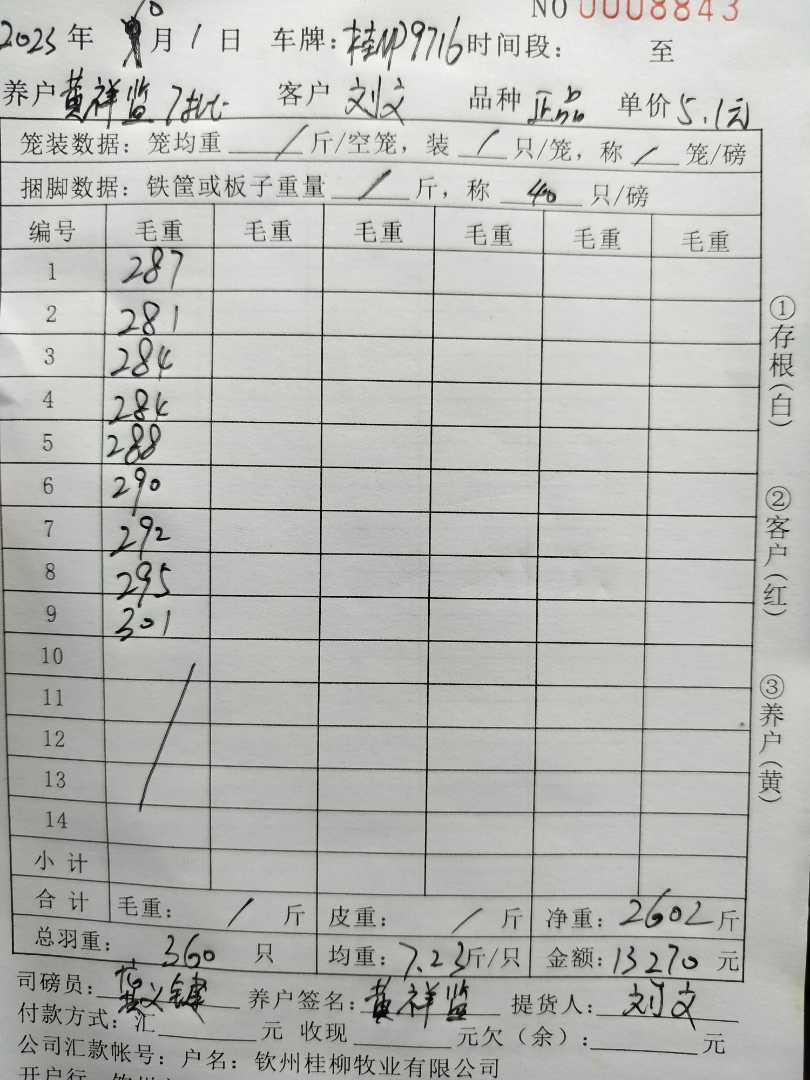 NO 0008843
2025 年 10 月 1 日 车牌: 桂NP9716 时间段: 至
养户 黄祥监 7批 客户 刘文 品种 正品 单价 5.1元
笼装数据: 笼均重 / 斤/空笼, 装 / 只/笼, 称 / 笼/磅
捆脚数据: 铁筐或板子重量 / 斤, 称 40 只/磅
编号 毛重 毛重 毛重 毛重 毛重 毛重
1 287
2 281
3 284
4 284
5 288
6 290
7 292
8 295
9 301
10
11
12
13
14
小计
合计 毛重: / 斤 皮重: / 斤 净重: 2602 斤
总羽重: 360 只 均重: 7.23 斤/只 金额: 13270 元
司磅员: 养户签名: 黄祥监 提货人: 刘文
付款方式: 汇 元 收现 元欠(余): 元
公司汇款帐号: 户名: 钦州桂柳牧业有限公司
开户行
①存根(白)
②客户(红)
③养户(黄)